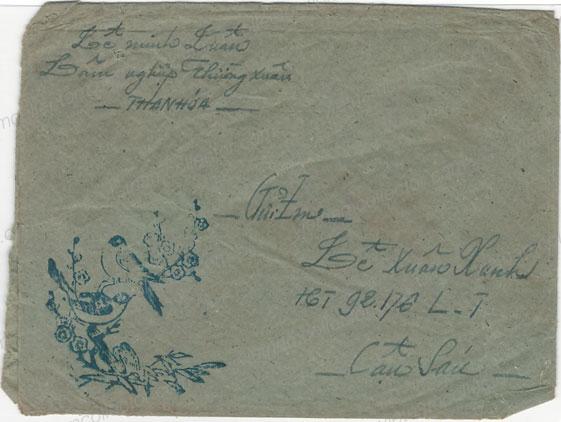 Lê minh Luân
Lâm nghiệp Thường xuân
— THANH HÓA —
— Gửi Em
Lê Xuân Xanh
HT 92.176 L-T
—